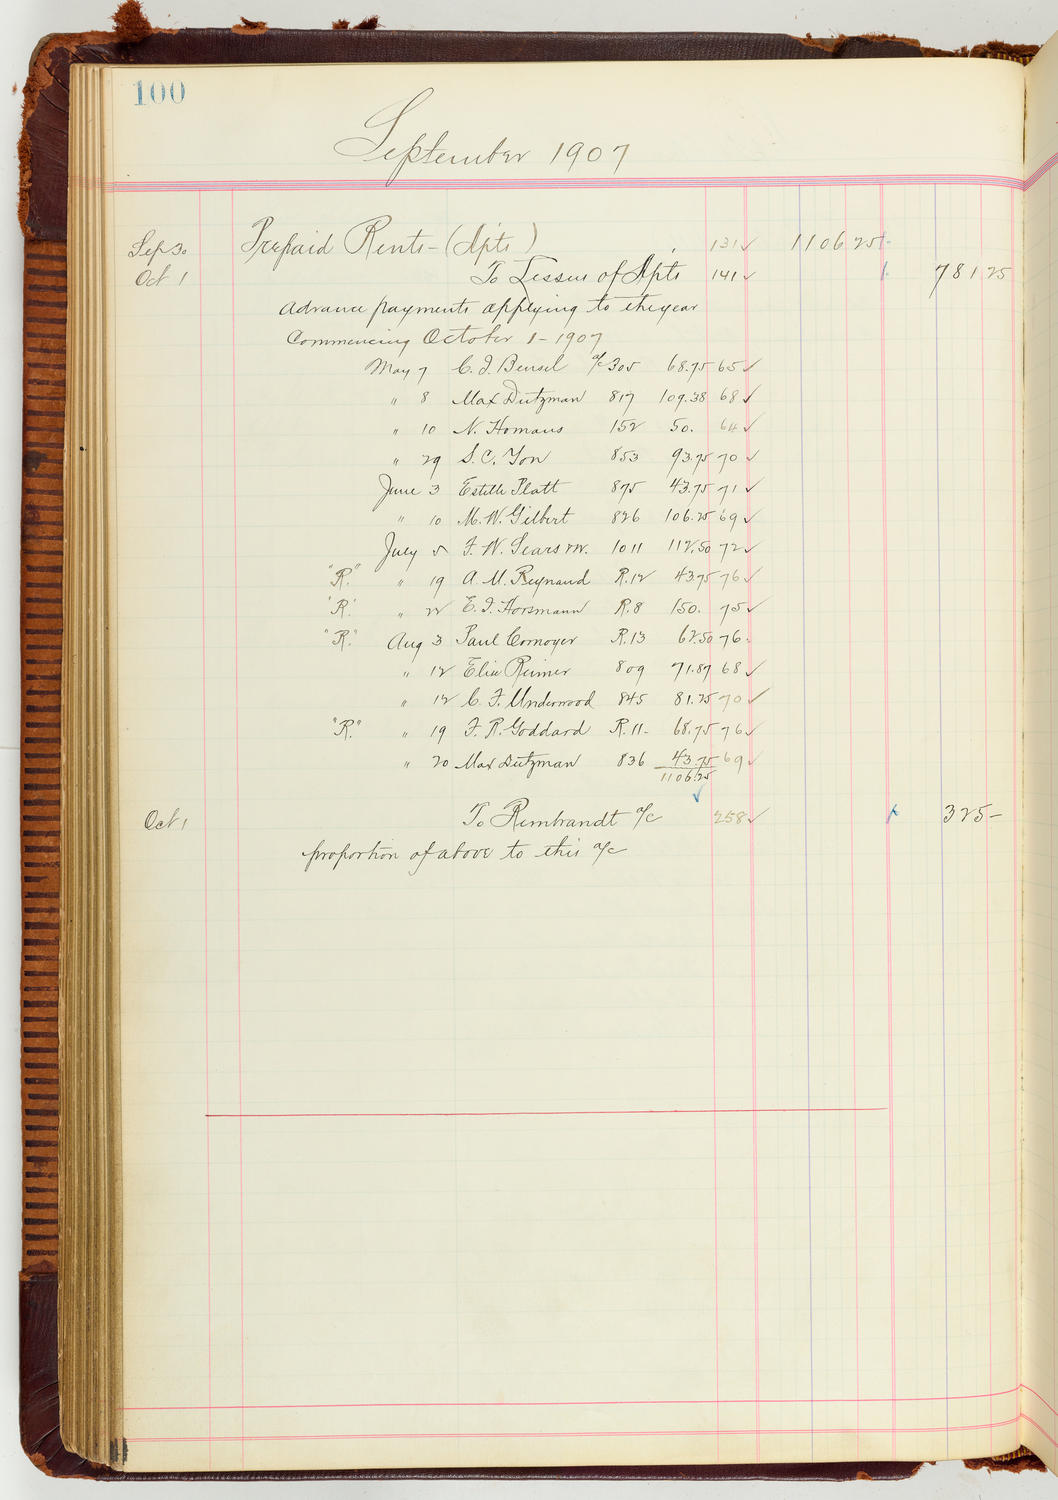 100
September 1907
Sep 30 Prepaid Rents - (Apts) 131 ✓ 1106 25
Oct 1 To Lessees of Apts 141 ✓ 781 25
Advance payments applying to the year
Commencing October 1 - 1907
May 7 C. I. Bensel a/c 305 68.75 65 ✓
" 8 Max Dutzman 817 109.38 68 ✓
" 10 N. Homans 152 50. 64 ✓
" 29 S. C. Yon 853 93.75 70 ✓
June 3 Estelle Platt 875 43.75 71 ✓
" 10 M. W. Gilbert 826 106.25 69 ✓
July 5 F. W. Sears 1011 112.50 72 ✓
"R." " 19 A. M. Reynaud R.12 43.75 76 ✓
"R." " 22 E. I. Horsmann R.8 150. 75 ✓
"R." Aug 3 Paul Cornoyer R.13 62.50 76
" 12 Elise Reimer 809 71.87 68 ✓
" 12 C. F. Underwood 845 81.25 70 ✓
"R." " 19 F. R. Goddard R.11- 68.75 76 ✓
" 20 Max Dutzman 836 43.75 69 ✓
1106.25
✓
Oct 1 To Rembrandt a/c 258 ✓ 325 -
proportion of above to this a/c